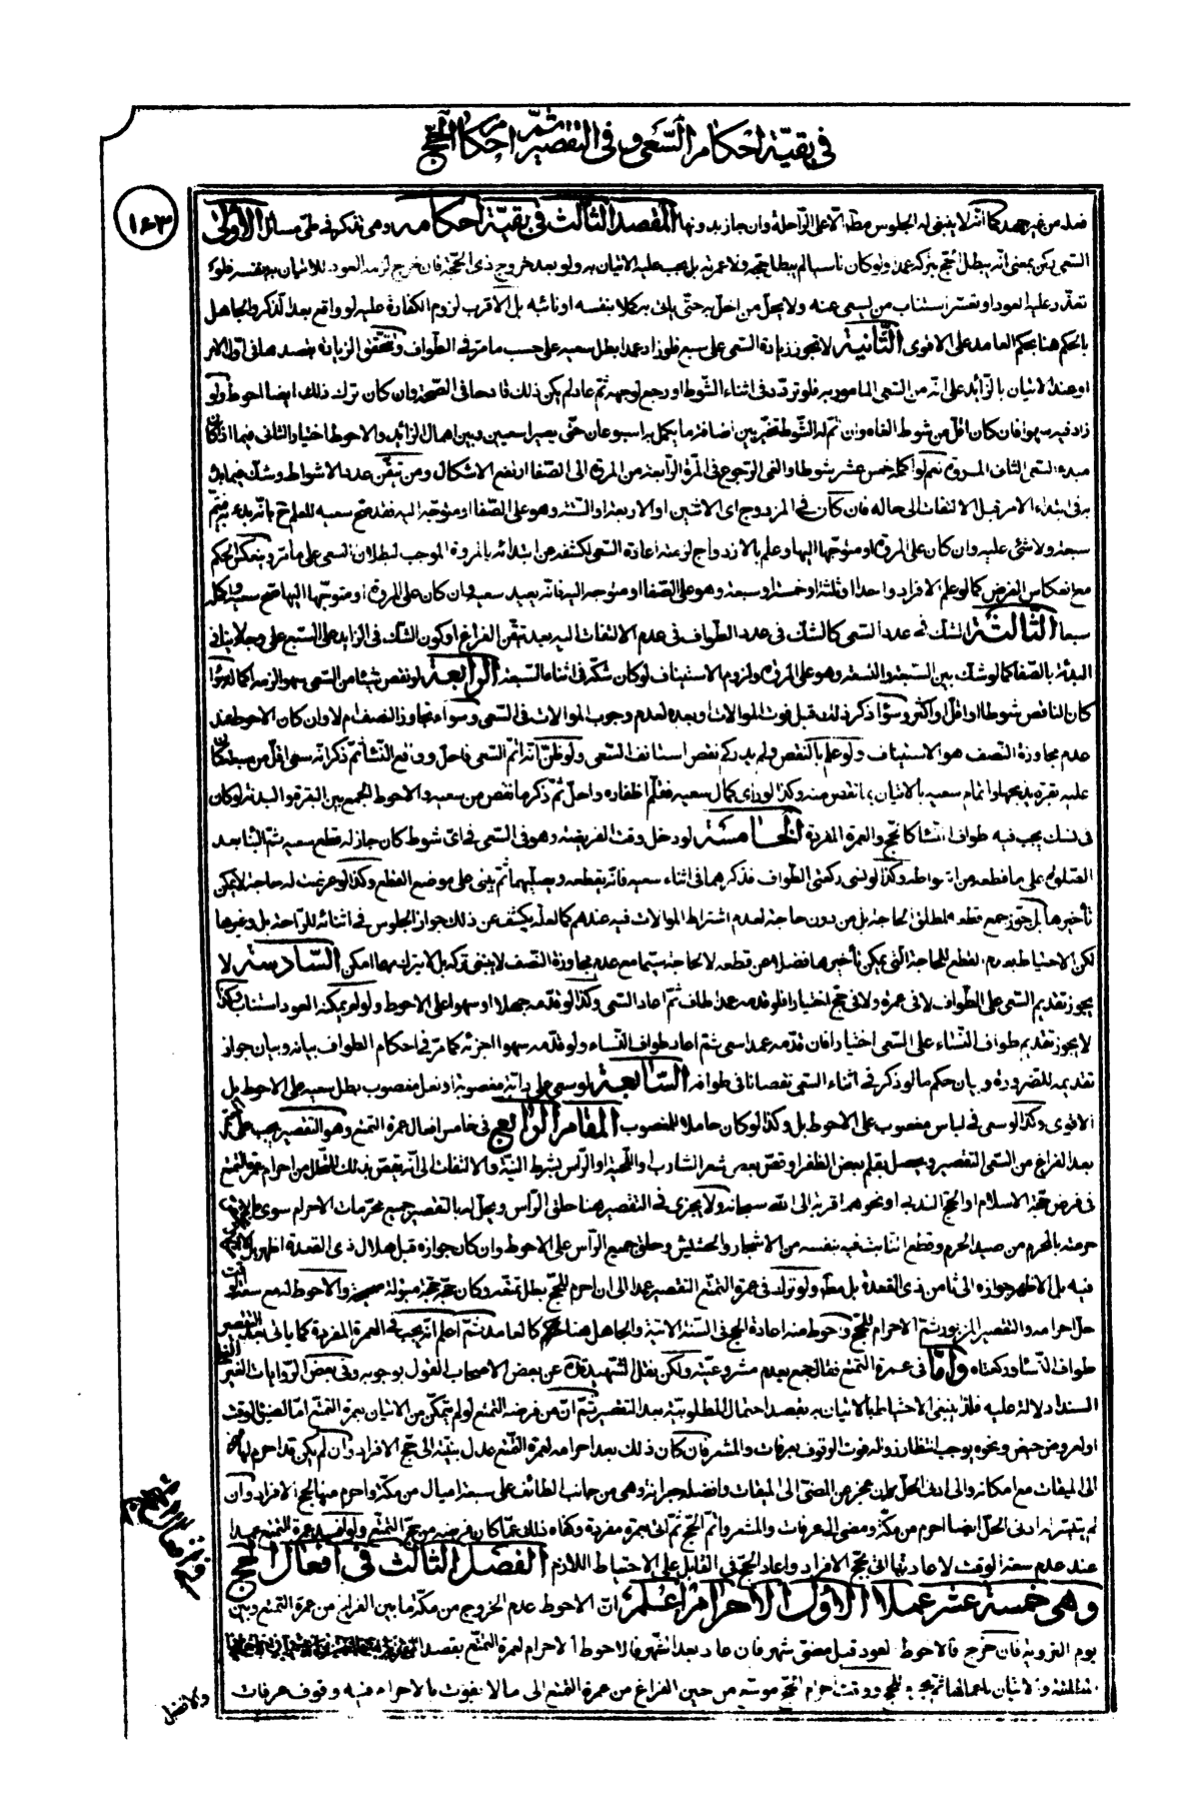 في بقيّة احكام السّعي و في التقصير ثمّ احكام الحجّ
١٤٣
كما انّه لا ينبغي له الجلوس مطلقا الّا على الرّاحلة وان جاز بدونها المقصد الثّالث في بقيّة احكامه وهي تذكر في طيّ مسائل الاولى
السّعي ركن بمعنى انّه يبطل الحجّ بتركه عمدا ولو كان ناسيا لم يبطل حجّه ولا عمرته بل يجب عليه الاتيان به ولو بعد خروج ذي الحجّة فان خرج لزمه العود للاتيان به بنفسه فلو
تعذّر عليه العود او تعسّر استناب من يسعى عنه ولا يحلّ من اخلّ به حتّى ياتي به كملا بنفسه او نائبه بل الاقرب لزوم الكفّارة عليه لو واقع بعد الذكر والجاهل
بالحكم هنا بحكم العامد على الاقوى الثّانية لا تجوز زيادة السّعي على سبع فلو زاد عمدا بطل سعيه على حسب ما مرّ في الطّواف وتحقّق الزيادة بقصدها في اوّل الامر
او عند الاتيان بالزّائد على انّه من السّعي المامور به فلو تردّد في اثناء الشّوط او رجع لوجهه ثمّ عاد لم يكن ذلك قادحا في الصّحّة وان كان ترك ذلك ايضا احوط ولو
زاد فيه سهوا فان كان اقلّ من شوط الغاه وان تمّ له الشّوط تخيّر بين اضافة ما يكمل به اسبوعان حتّى يصير سعيين وبين اهمال الزّائد والاحوط اختيار الثاني فيما اذا كان
مبدء السّعي الثاني المروة نعم لو اكمله خمس عشر شوطا والغى الرّجوع في المرّة الرّابعة من المروة الى الصّفا ارتفع الاشكال ومن تيقّن عدد الاشواط وشكّ فيما بدء
به في ابتداء الامر قبل الالتفات الى حاله فان كان في المزدوج اي الاثنين او الاربعة او الستّة وهو على الصّفا او متوجّه اليه فقد صحّ سعيه للعلم ح بانّه بدء به فيتمّ
سبعة ولا شيء عليه وان كان على المروة او متوجّها اليها وعلم بالازدواج لزمه اعادة السّعي لكشفه عن ابتدائه بالمروة الموجب لبطلان السّعي على ما مرّ وينعكس الحكم
مع انعكاس الفرض كما لو علم الافراد واحدا او ثلثة او خمسة او سبعة وهو على الصّفا او متوجه اليه فانّه يعيد سعيه وان كان على المروة او متوجّها اليها صحّ سعيه واكمله
سبعا الثّالثة الشكّ في عدد السّعي كالشكّ في عدد الطّواف في عدم الالتفات اليه بعد تيقّن الفراغ او كون الشكّ في الزايد على السّبع على وجه لا ينافي
البدئة بالصّفا كما لو شكّ بين السّبعة والتسعة وهو على المروة ولزوم الاستيناف لو كان شكّه في اثناء السّبعة الرّابعة لو نقص شيئا من السّعي سهوا لزمه اكماله سواء
كان الناقص شوطا او اقلّ او اكثر وسواء ذكر ذلك قبل فوت الموالات او بعده لعدم وجوب الموالات في السّعي وسواء تجاوز النصف ام لا وان كان الاحوط عند
عدم مجاوزة النّصف هو الاستيناف ولو علم بالنقص ولم يدر كم نقص استانف السّعي ولو ظنّ انّه اتمّ السّعي فاحلّ وواقع النّساء ثمّ ذكر انّه سعى اقلّ من سبعة كان
عليه بقرة يذبحها واتمام سعيه بالاتيان بما نقص منه وكذا لو راى كمال سعيه فقلّم اظفاره واحلّ ثمّ ذكر ما نقص من سعيه والاحوط الجمع بين البقرة والبدنة لو كان
في نسك يجب فيه طواف النّساء كالحج والعمرة المفردة الخامسة لو دخل وقت الفريضة وهو في السّعي في ايّ شوط كان جاز له قطع سعيه ثمّ البناء بعد
الصّلوة على ما قطعه من اشواطه وكذا لو نسي ركعتي الطّواف فذكرهما في اثناء سعيه فانّه يقطعه ويصلّيهما ثمّ يبني على موضع القطع وكذا لو عرضت له حاجة لا يمكن
تأخيرها بل جوّز جمع قطعه لمطلق الحاجة بل من دون حاجة لعدم اشتراط الموالات فيه عندهم كما لعلّه يكشف عن ذلك جواز الجلوس في اثنائه للرّاحة بل وغيرها
لكن الاحتياط بعدم القطع للحاجة الّتي يمكن تأخيرها فضلا عن قطعه لا لحاجة سيّما مع عدم مجاوزة النّصف لا ينبغي تركه بل لا يترك مهما امكن السّادسة لا
يجوز تقديم السّعي على الطّواف لا في عمرة ولا في حجّ اختيارا فلو قدمه عمدا طاف ثمّ اعاد السّعي وكذا لو قدّمه جهلا او سهوا على الاحوط ولو لم يمكنه العود استناب وكذا
لا يجوز تقديم طواف النّساء على السّعي اختيارا فان قدّمه عمدا سعى ثمّ اعاد طواف النّساء ولو قدّمه سهوا اجزئه كما مرّ في احكام الطواف بيانه وبيان جواز
تقديمه للضرورة وبيان حكم ما لو ذكر في اثناء السّعي نقصانا في طوافه السّابعة لو سعى على دابّة مغصوبة او نعل مغصوب بطل سعيه على الاحوط بل
الاقوى وكذا لو سعى في لباس مغصوب على الاحوط بل وكذا لو كان حاملا للمغصوب المقام الرّابع في خامس افعال عمرة التمتّع وهو التقصير يجب على
بعد الفراغ من السّعي التقصير ويحصل بقلم بعض الظفر او قصّ بعض شعر الشارب او اللّحية او الرّأس بشرط النيّة والالتفات الى انّه يقصّ بذلك للتّحلّل من احرام عمرة التمتّع
في فرض حجّة الاسلام او الحجّ الندبي او نحوهما قربة الى الله سبحانه ولا يجزي في التقصير هنا حلق الرّأس ويحلّ له بالتقصير جميع محرّمات الاحرام سوى
حرمته بالحرم من صيد الحرم وقطع النّابت فيه بنفسه من الاشجار والحشيش وحلق جميع الرّأس على الاحوط وان كان جوازه قبل هلال ذي القعدة اظهر بل
فيه بل الاظهر جوازه الى ثامن ذي القعدة بل مطلقا ولو ترك في عمرة التمتّع التقصير عمدا الى ان احرم للحجّ بطل تمتّعه وكان حجّه حجة مبتولة والاحوط له مع سعة
حلّ احرامه والتقصير المزبور ثمّ الاحرام للحجّ واحوط منه اعادة الحج في السّنة الاتية والجاهل هنا كالعامد ثمّ اعلم انّه يجب في العمرة المفردة كما ياتي بعد التقصير
طواف النّساء وركعتاه وامّا في عمرة التمتّع فقال جمع بعدم مشروعيّته ولكن نقل الشّهيد عن بعض الاصحاب القول بوجوبه وفي بعض الرّوايات الغير
السند دلالة عليه فلذا ينبغي الاحتياط بالاتيان به بقصد احتمال المطلوبيّة بعد التقصير ثمّ انّ من فرضه التمتع لو لم يتمكّن من الاتيان بعمرة التمتّع امّا لضيق الوقت
او لعروض حيض ونحوه يوجب انتظار زواله فوت الوقوف بعرفات والمشعر فان كان ذلك بعد احرامه لعمرة التّمتّع عدل بنيّته الى حجّ الافراد وان لم يكن قد احرم لها
الى الميقات مع امكانه والى ادنى الحلّ ان عجز عن المضيّ الى الميقات وافضله جعرانة وهي من جانب الطائف على سبعة اميال من مكّة واحرم منها لحج الافراد وان
لم يتيسّر له ادنى الحلّ ايضا احرم من مكّة ومضى الى عرفات والمشعر واتمّ الحج ثمّ اتى بعمرة مفردة وكفاه ذلك عمّا كان فرضه من حجّ التمتّع ولو افسد عمرة التمتّع عمدا
عند عدم سعة الوقت لاعادتها اتى بحجّ الافراد واعاد الحجّ في القابل على الاحتياط اللازم الفصل الثّالث في افعال الحج
وهي خمسة عشر عملا الاوّل الاحرام اعلم انّ الاحوط عدم الخروج من مكّة ما بين الفراغ من عمرة التمتع وبين
يوم التروية فان خرج فالاحوط العود قبل مضيّ شهر فان عاد بعد الشّهر فالاحوط الاحرام لعمرة التمتّع بقصد
والاتيان باعمالها ثمّ يحرم للحج ووقت احرام الحجّ موسّع من حين الفراغ من عمرة التمتع الى ما لا يفوت بالاحرام فيه وقوف عرفات
والافضل